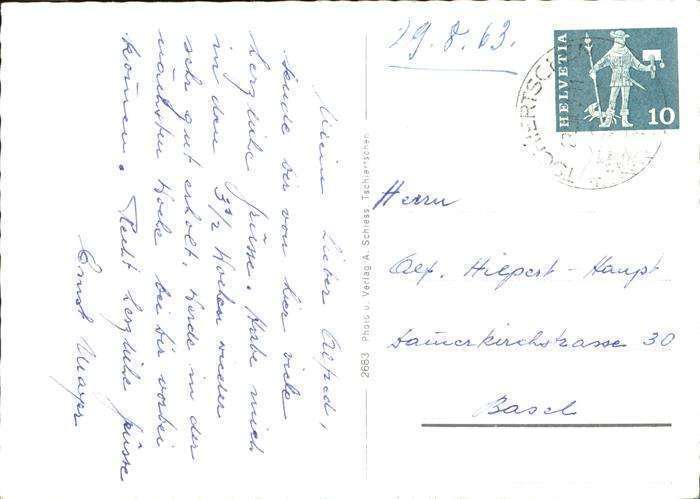 29.8.63.
HELVETIA
10
TSCHIERTSCHEN
Mein lieber Alfred,
sende dir von hier viele
herzliche Grüsse. Habe mich
in den 3½ Wochen wieder
sehr gut erholt. Werde in der
nächsten Woche bei dir vorbei
kommen. Recht herzliche Grüsse
Ernst Mayer
2683 Photo u. Verlag A. Schiess, Tschiertschen
Herrn
Alf. Hiepert-Haupt
Dammerkirchstrasse 30
Basel